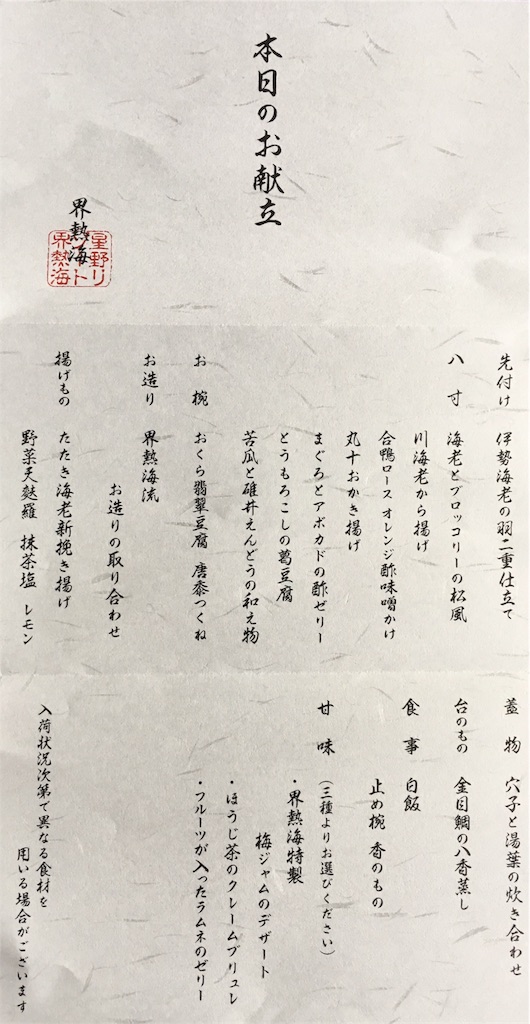 本日のお献立
界熱海
星野リ
ゾート
界熱海
先付け 伊勢海老の羽二重仕立て
八寸 海老とブロッコリーの松風
川海老から揚げ
合鴨ロース オレンジ酢味噌かけ
丸十おかき揚げ
まぐろとアボカドの酢ゼリー
とうもろこしの葛豆腐
苦瓜と碓井えんどうの和え物
お椀 おくら翡翠豆腐 唐黍つくね
お造り 界熱海流
お造りの取り合わせ
揚げもの たたき海老新挽き揚げ
野菜天麩羅 抹茶塩 レモン
蓋物 穴子と湯葉の炊き合わせ
台のもの 金目鯛の八香蒸し
食事 白飯
止め椀 香のもの
甘味 (三種よりお選びください)
・界熱海特製
梅ジャムのデザート
・ほうじ茶のクレームブリュレ
・フルーツが入ったラムネのゼリー
入荷状況次第で異なる食材を
用いる場合がございます